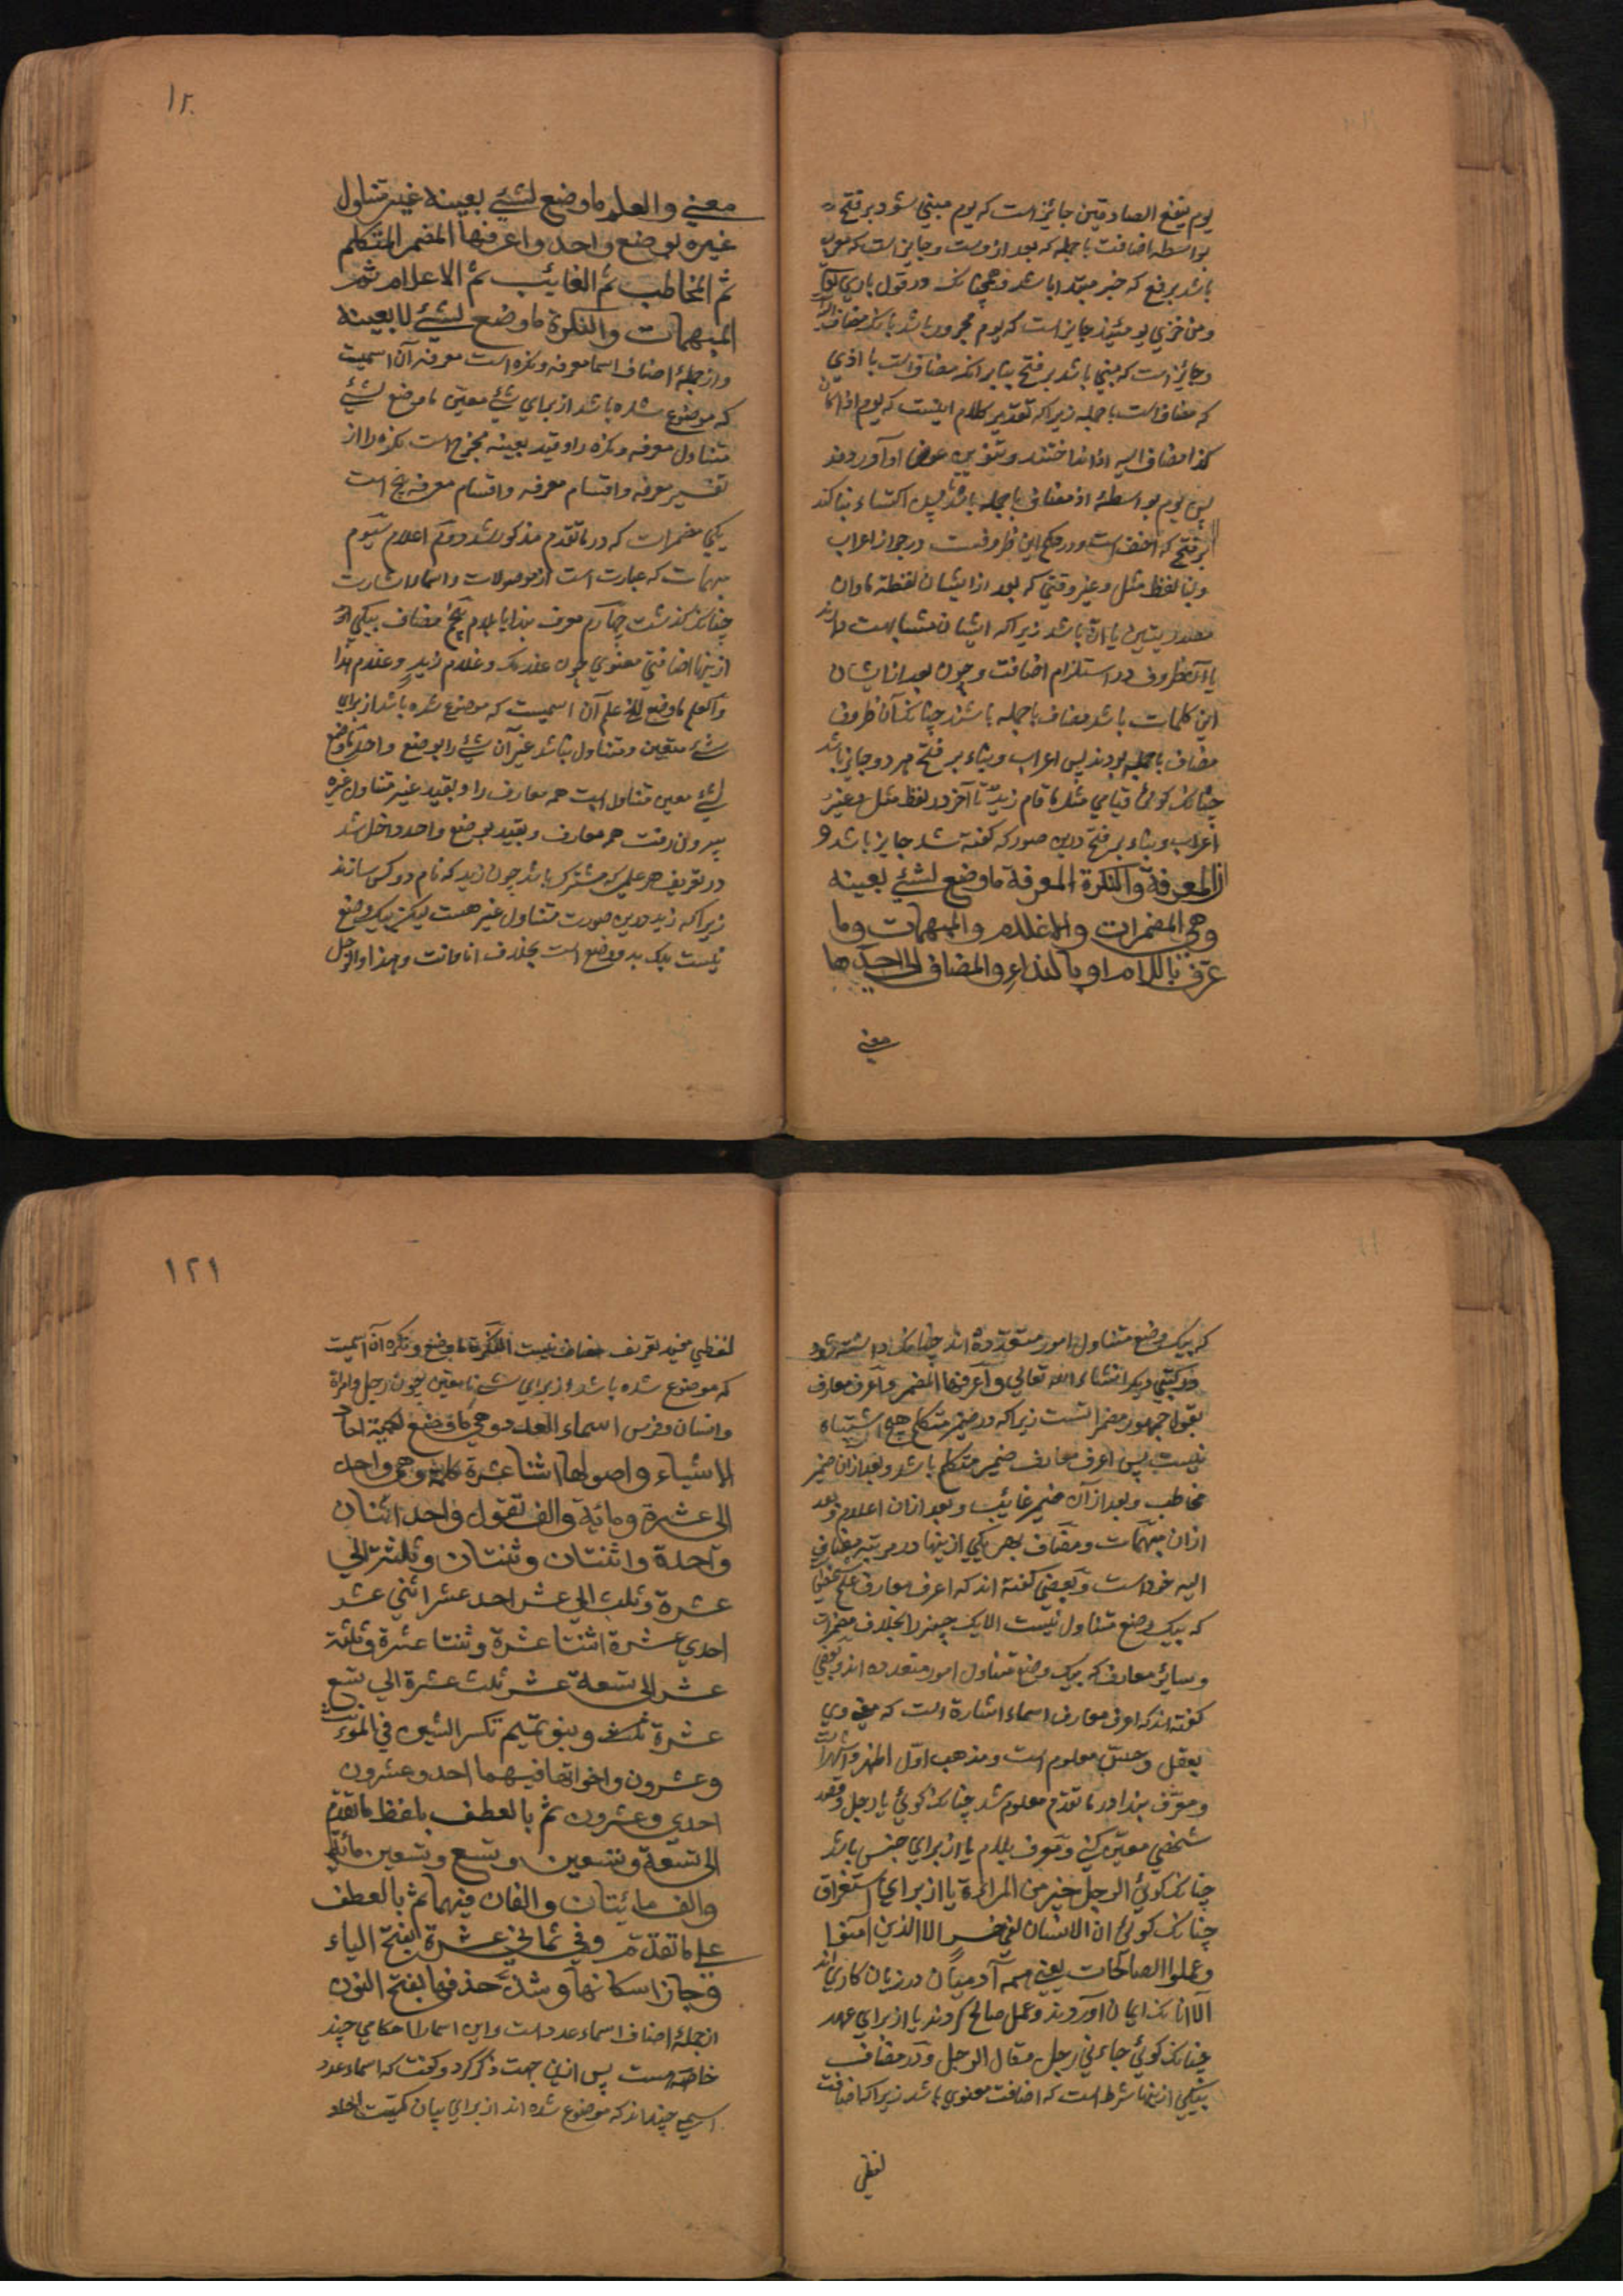 یوم ینفع الصادقین جائز است که یوم مبنی شود بر فتح
بواسطه اضافت با جمله که بعد ازوست و جایز است که معرب
باشد برفع که خبر مبتدا باشد و همچنانک در قول باری تعالی
ومن خزی یومئذ جایز است که یوم مجرور باشد بانک مضاف الیه
وجائز است که مبنی باشد بر فتح بنابر آنکه مضاف است با اذی
که مضاف است با جمله زیرا که تقدیر کلام اینست که یوم اذ کان
کذا مضاف الیه اذ انداختند و تنوین عوض او آوردند
پس یوم بواسطهٔ اذ مضاف با جمله باشد پس اکتساء بنا کند
بر فتح که اخف است و در حکم این ظروفست در جواز اعراب
وبنا لفظ مثل و غیر وقتی که بعد از ایشان لفظه ما وان
مصدریتین یا انّ باشد زیرا که ایشان مشابهت دارند
با آن ظروف در استلزام اضافت و چون بعد از ایشان
این کلمات باشد مضاف با جمله باشند چنانک آن ظروف
مضاف با جمله بودند پس اعراب و بناء بر فتح هر دو جایز باشد
چنانک کوئی قیامی مثل ما قام زید تا آخر در لفظ مثل و غیر
اعراب و بناء بر فتح درین صور که کفته شد جایز باشد و
المعرفة والنکرة المعرفة ماوضع لشئ بعینه
وهی المضمرات والاعلام والمبهمات وما
عرف باللام او بالنداء والمضاف الی احدها
معنی
۱۲۰
معنی والعلم ماوضع لشئ بعینه غیر متناول
غیره بوضع واحد واعرفها المضمر المتکلم
ثم المخاطب ثم الغائب ثم الاعلام ثم
المبهمات والنکرة ماوضع لشئ لا بعینه
واز جملهٔ اصناف اسما معرفه ونکره است معرفه آن اسمیست
که موضوع شده باشد از برای شئ معین ماوضع لشئ
متناول معرفه ونکره را وقید بعینه مخرج است نکره را از
تفسیر معرفه واقسام معرفه واقسام معرفه پنج است
یکی مضمرات که در ماتقدم مذکور شد دوم اعلام سیوم
مبهمات که عبارت است از موصولات واسماء اشارت
چنانک کذشت چهارم معرف بندا یا بلام پنج مضاف بیکی از
ازینها اضافتی معنوی چون عندک وغلام زید وغلام هذا
والعلم ماوضع للخ علم آن اسمیست که موضوع شده باشد از برای
شئ متعین ومتناول نباشد غیر آن شئ را بوضع واحد ماوضع
لشئ معین متناول است همه معارف را وبقید غیر متناول غیره
بیرون رفت همه معارف وبقید بوضع واحد داخل شد
در تعریف هر علمی که مشترک باشد چون زید که نام دو کس سازند
زیرا که زید درین صورت متناول غیر هست لیکن بیک وضع
نیست بلک بدو وضع است بخلاف انا وانت وهذا والرجل
که بیک وضع متناول امور متعدده اند چنانک دانسته شود
در کتبی دیکر انشاء الله تعالی واعرفها المضمر واعرف معارف
بقول جمهور مضمراتست زیرا که در ضمیر متکلم هیچ اشتباه
نیست پس اعرف معارف ضمیر متکلم باشد وبعد ازان ضمیر
مخاطب وبعد ازآن ضمیر غائب وبعد ازان اعلام وبعد
ازان مبهمات ومضاف بهر یکی ازینها در مرتبه مضاف
الیه خود است وبعضی کفته اند که اعرف معارف علم
که بیک وضع متناول نیست الا یک چیز را بخلاف مضمرات
وسایر معارف که بیک وضع متناول امور متعدده اند وبعضی
کفته اند که اعرف معارف اسماء اشارة است که معنی وی
بعقل وحس معلوم است ومذهب اول اظهر واشهر است
ومعرف بندا در ماتقدم معلوم شد چنانک کوئی یا رجل وقصد
شخصی معین کنی ومعرف بلام یا از برای جنس باشد
چنانک کوئی الرجل خیر من المراة یا از برای استغراق
چنانک کوئی ان الانسان لفی خسر الا الذین آمنوا
وعملوا الصالحات یعنی همه آدمیان در زیان کاری اند
الا انانک ایمان آوردند وعمل صالح کردند یا از برای عهد
چنانک کوئی جاءنی رجل فقال الرجل ودر مضاف
بیکی ازینها شرط است که اضافت معنوی باشد زیرا که اضافت
لفظی
۱۲۱
لفظی مفید تعریف مضاف نیست النکرة ماوضع ونکره آن اسمیست
که موضوع شده باشد از برای شئ نامعین چون رجل وامراة
وانسان وفرس اسماء العدد وهی ماوضع لکمیة احاد
الاشیاء واصولها اثنا عشرة کلمة وهی واحد
الی عشرة ومائة والف تقول واحد اثنان
واحدة واثنتان وثنتان وثلثة الی
عشرة وثلث الی عشر احد عشر اثنی عشر
احدی عشرة اثنتا عشرة وثنتا عشرة وثلثة
عشر الی تسعة عشر ثلث عشرة الی تسع
عشرة وبنو تمیم تکسر الشین فی المؤنث
وعشرون واخواتها فیهما احد وعشرون
احدی وعشرون ثم بالعطف بلفظ ماتقدم
الی تسعة وتسعین وتسع وتسعین مائة
والف مائتان والفان فیهما ثم بالعطف
علی ماتقدم وفی ثمانی عشرة فتح الیاء
وجاز اسکانها وشذ حذفها بفتح النون
از جملهٔ اصناف اسماء عدد است واین اسما را احکامی چند
خاصه هست پس ازین جهت ذکر کرد وکفت که اسماء عدد
اسمی چند اند که موضوع شده اند از برای بیان کمیت احاد